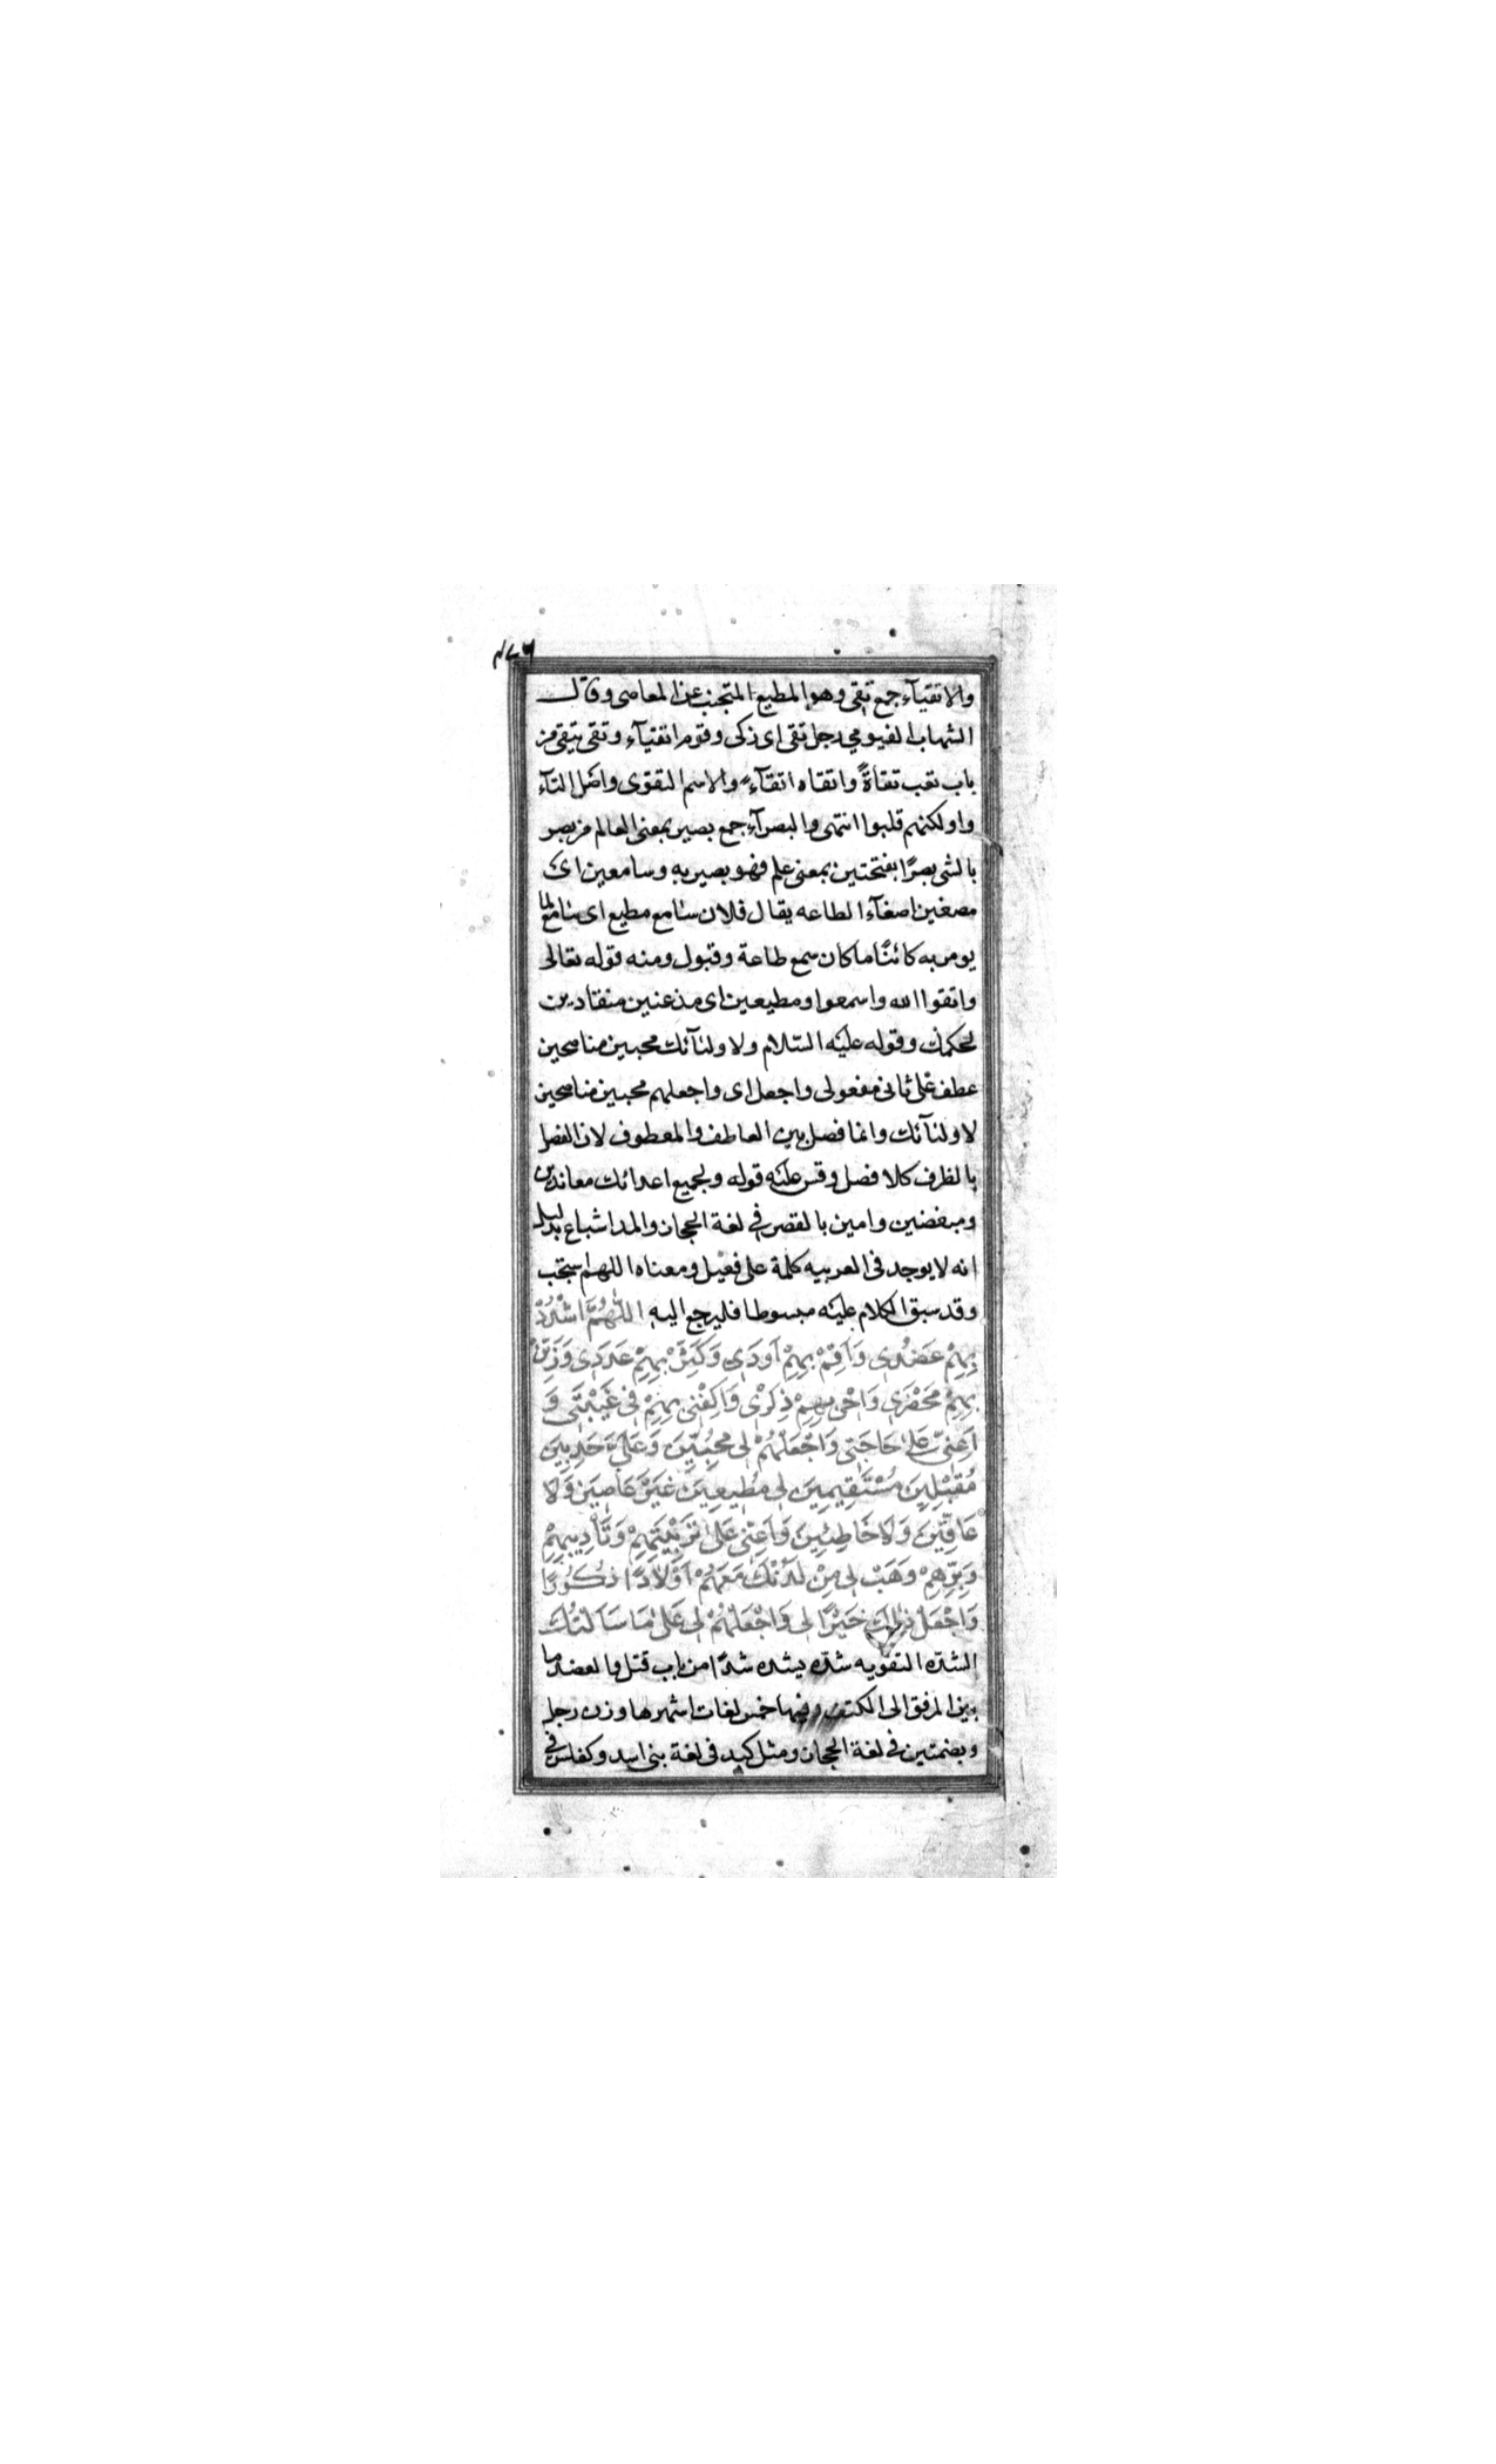 ۴۷۶
والاتقيآء جمع تقى وهو المطيع المتجنب عن المعاصى وقال
الشهاب الفيومي رجل تقى اى زكى وقوم اتقيآء وتقى يتقى من
باب تعب تقاةً واتقاه اتقآءً والاسم التقوى واصل التآء
واو لكنهم قلبوا انتهى والبصرآء جمع بصير بمعنى العالم من بصر
بالشى بصرًا بفتحتين بمعنى علم فهو بصير به وسامعين اى
مصغين اصغآء الطاعه يقال فلان سامع مطيع اى سامع لما
يومر به كائنًا ما كان سمع طاعة وقبول ومنه قوله تعالى
واتقوا الله واسمعوا ومطيعين اى مذعنين منقادين
لحكمك وقوله عليه السّلام ولاوليآئك محبين مناصحين
عطف على ثانى مفعولى واجعل اى واجعلهم محبين مناصحين
لاوليآئك وانما فصل بين العاطف والمعطوف لان الفصل
بالظرف كلا فصل وقس عليه قوله ولجميع اعدائك معاندين
ومبغضين وامين بالقصر في لغة الحجاز والمد اشباع بدليل
انه لا يوجد فى العربيه كلمة على فعيل ومعناه اللهم استجب
وقد سبق الكلام عليه مبسوطا فليرجع اليه اللّٰهُمَّ اشْدُدْ
بِهِمْ عَضُدِى وَاَقِمْ بِهِمْ اَوَدِى وَكَثِّرْ بِهِمْ عَدَدِى وَزَيِّنْ
بِهِمْ مَحْضَرِى وَاَحْىِ بِهِمْ ذِكْرِى وَاكْفِنِى بِهِمْ فِى غَيْبَتِى وَ
اَعِنِّى عَلىٰ حَاجَتِى وَاجْعَلْهُمْ لِى مُحِبِّيْنَ وَعَلَىَّ حَدِبِيْنَ
مُقْبِلِيْنَ مُسْتَقِيمِيْنَ لِى مُطِيعِيْنَ غَيْرَ عَاصِيْنَ وَلَا
عَاقِّيْنَ وَلَا خَاطِئِيْنَ وَاَعِنِّى عَلىٰ تَرْبِيَتِهِمْ وَتَأْدِيبِهِمْ
وَبِرِّهِمْ وَهَبْ لِى مِنْ لَدُنْكَ مَعَهُمْ اَوْلَادًا ذُكُورًا
وَاجْعَلْ ذٰلِكَ خَيْرًا لِى وَاجْعَلْهُمْ لِى عَلىٰ مَا سَاَلْتُكَ
الشدّه التقويه شدّه يشده شدًّا من باب قتل والعضد ما
بين المرفق الى الكتف وفيها خمس لغات اشهرها وزن رجل
وبضمتين في لغة الحجاز ومثل كبد فى لغة بنى اسد وكفلس في